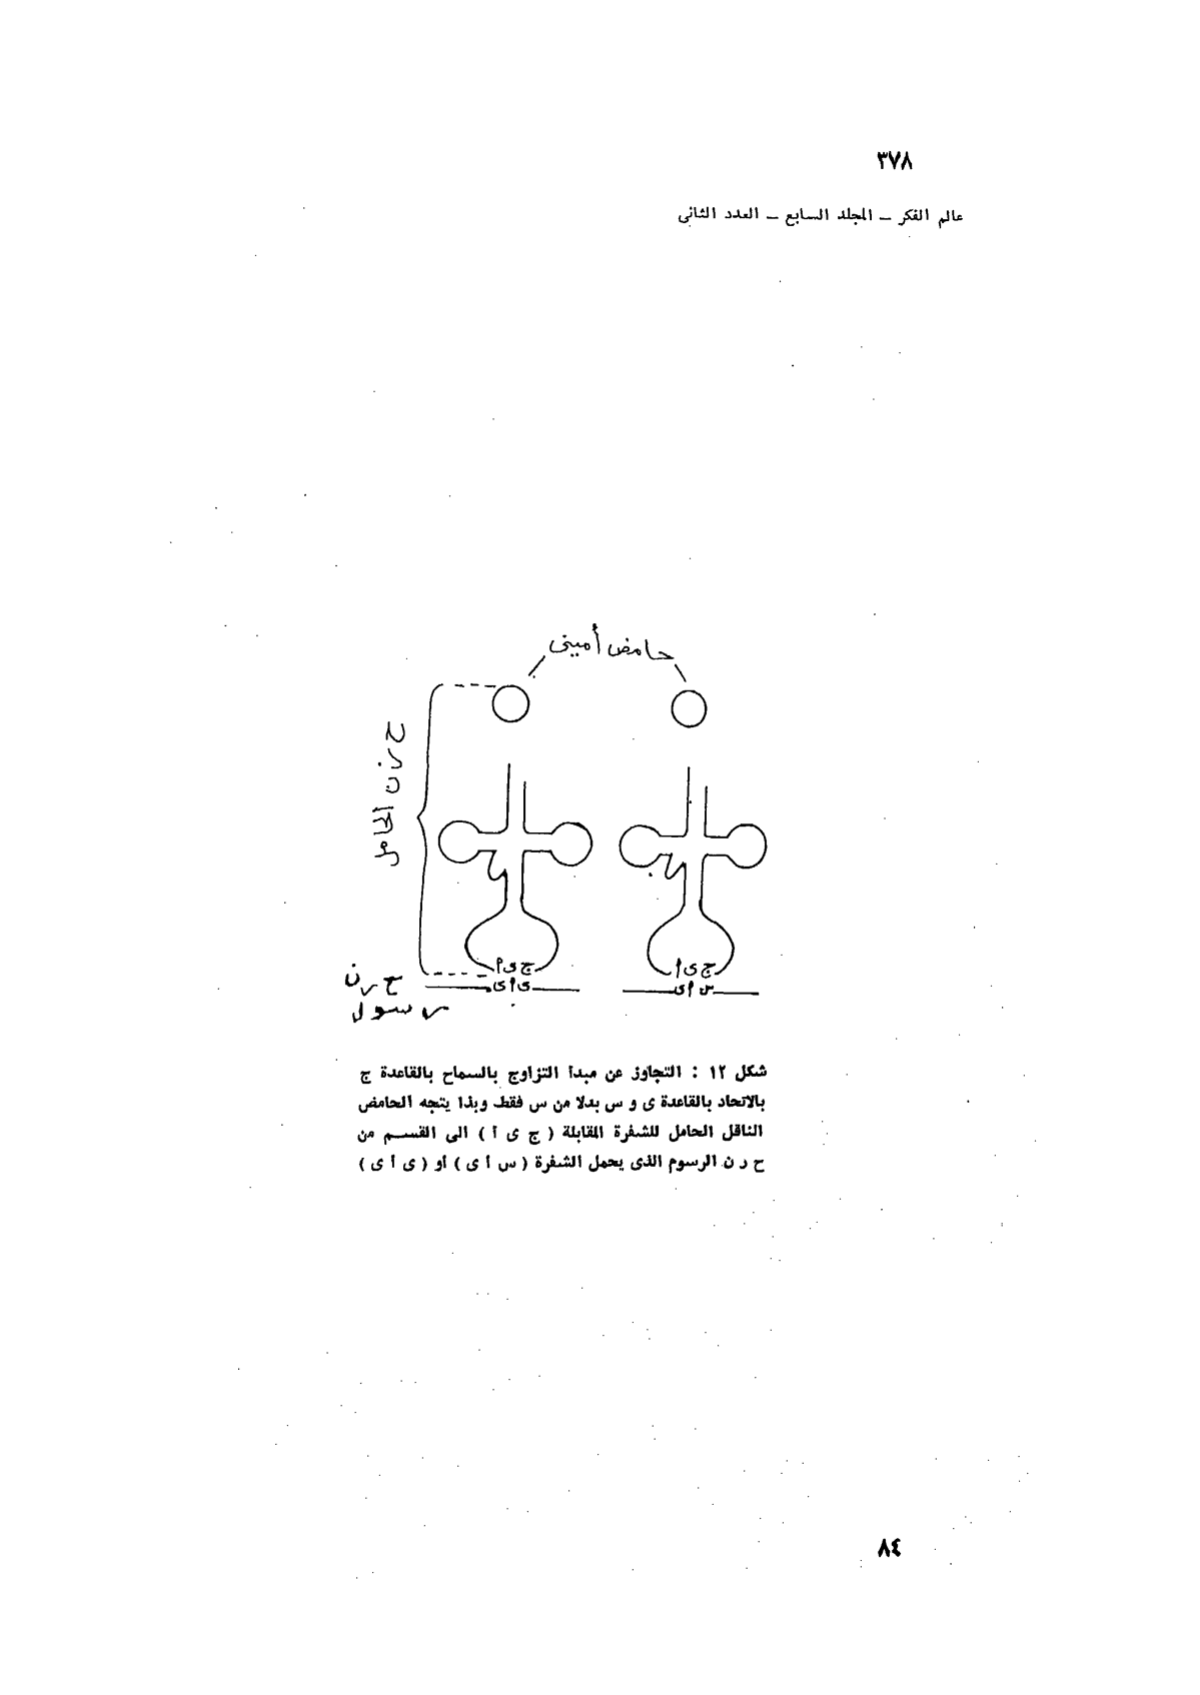 ٣٧٨
عالم الفكر ــ المجلد السابع ــ العدد الثانى
حامض أمينى
ح ر ن الحامل
ج ى أ
ج ى أ
ى أ ى
س أ ى
ح ر ن
رسول
شكل ١٢ : التجاوز عن مبدأ التزاوج بالسماح بالقاعدة ج
بالاتحاد بالقاعدة ى و س بدلا من س فقط وبذا يتجه الحامض
الناقل الحامل للشفرة المقابلة ( ج ى أ ) الى القسم من
ح ر ن الرسوم الذى يحمل الشفرة ( س أ ى ) أو ( ى أ ى )
٨٤